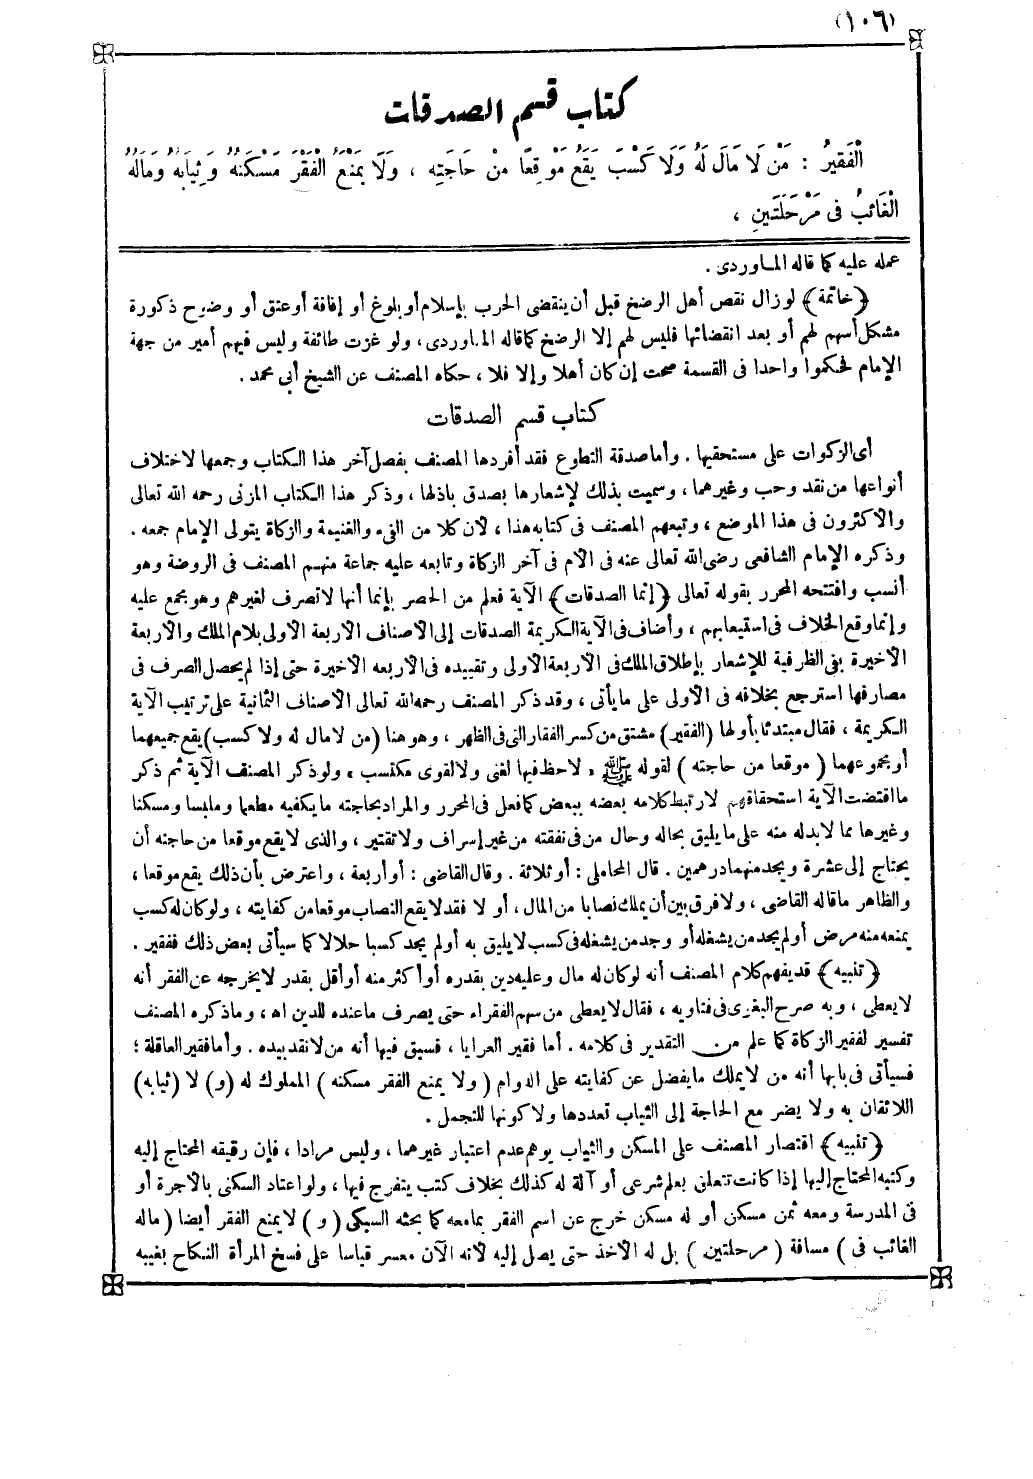 (١٠٦)
كتاب قسم الصدقات
الْفَقِيرُ : مَنْ لَا مَالَ لَهُ وَلَا كَسْبَ يَقَعُ مَوْقِعًا مِنْ حَاجَتِهِ ، وَلَا يَمْنَعُ الْفَقْرَ مَسْكَنُهُ وَثِيَابُهُ وَمَالُهُ
الْغَائِبُ فِى مَرْحَلَتَيْنِ ،
عمله عليه كما قاله الماوردى .
﴿خاتمة﴾ لو زال نقص أهل الرضخ قبل أن ينقضى الحرب بإسلام أو بلوغ أو إفاقة أو عتق أو وضوح ذكورة
مشكل أسهم لهم أو بعد انقضائها فليس لهم إلا الرضخ كما قاله الماوردى ، ولو غزت طائفة وليس فيهم أمير من جهة
الإمام فحكموا واحدا فى القسمة صحت إن كان أهلا وإلا فلا ، حكاه المصنف عن الشيخ أبى محمد .
كتاب قسم الصدقات
أى الزكوات على مستحقيها . وأما صدقة التطوع فقد أفردها المصنف بفصل آخر هذا الكتاب وجمعها لاختلاف
أنواعها من نقد وحب وغيرهما ، وسميت بذلك لإشعارها بصدق باذلها ، وذكر هذا الكتاب المزنى رحمه الله تعالى
والأكثرون فى هذا الموضع ، وتبعهم المصنف فى كتابه هذا ، لأن كلا من الفىء والغنيمة والزكاة يتولى الإمام جمعه .
وذكره الإمام الشافعى رضى الله تعالى عنه فى الأم فى آخر الزكاة وتابعه عليه جماعة منهم المصنف فى الروضة وهو
أنسب وافتتحه المحرر بقوله تعالى ﴿إنما الصدقات﴾ الآية فعلم من الحصر بإنما أنها لا تصرف لغيرهم وهو مجمع عليه
وإنما وقع الخلاف فى استيعابهم ، وأضاف فى الآية الكريمة الصدقات إلى الأصناف الأربعة الأولى بلام الملك والأربعة
الأخيرة بفى الظرفية للإشعار بإطلاق الملك فى الأربعة الأولى وتقييده فى الأربعه الأخيرة حتى إذا لم يحصل الصرف فى
مصارفها استرجع بخلافه فى الأولى على ما يأتى ، وقد ذكر المصنف رحمه الله تعالى الأصناف الثمانية على ترتيب الآية
الكريمة ، فقال مبتدئا بأولها (الفقير) مشتق من كسر الفقار التى فى الظهر ، وهو هنا (من لا مال له ولا كسب) يقع جميعهما
أو مجموعهما ( موقعا من حاجته ) لقوله ﷺ « لا حظ فيها لغنى ولا لقوى مكتسب » ولو ذكر المصنف الآية ثم ذكر
ما اقتضت الآية استحقاقهم لارتبط كلامه بعضه ببعض كما فعل فى المحرر والمراد بحاجته ما يكفيه مطعما وملبسا ومسكنا
وغيرها مما لابد له منه على ما يليق بحاله وحال من فى نفقته من غير إسراف ولا تقتير ، والذى لا يقع موقعا من حاجته أن
يحتاج إلى عشرة ويجد منها درهمين . قال المحاملى : أو ثلاثة . وقال القاضى : أو أربعة ، واعترض بأن ذلك يقع موقعا ،
والظاهر ما قاله القاضى ، ولا فرق بين أن يملك نصابا من المال ، أو لا فقد لا يقع النصاب موقعا من كفايته ، ولو كان له كسب
يمنعه منه مرض أو لم يجد من يشغله أو وجد من يشغله فى كسب لا يليق به أو لم يجد كسبا حلالا كما سيأتى بعض ذلك ففقير .
﴿تنبيه﴾ قد يفهم كلام المصنف أنه لو كان له مال وعليه دين بقدره أو أكثر منه أو أقل بقدر لا يخرجه عن الفقر أنه
لا يعطى ، وبه صرح البغوى فى فتاويه ، فقال لا يعطى من سهم الفقراء حتى يصرف ما عنده للدين اه ، وما ذكره المصنف
تفسير لفقير الزكاة كما علم من التقدير فى كلامه . أما فقير العرايا ، فسبق فيها أنه من لا نقد بيده . وأما فقير العاقلة ؛
فسيأتى فى بابها أنه من لا يملك ما يفضل عن كفايته على الدوام ( ولا يمنع الفقر مسكنه ) المملوك له (و) لا (ثيابه)
اللائقان به ولا يضر مع الحاجة إلى الثياب تعددها ولا كونها للتجمل .
﴿تنبيه﴾ اقتصار المصنف على المسكن والثياب يوهم عدم اعتبار غيرهما ، وليس مرادا ، فإن رقيقه المحتاج إليه
وكتبه المحتاج إليها إذا كانت تتعلق بعلم شرعى أو آلة له كذلك بخلاف كتب يتفرج فيها ، ولو اعتاد السكنى بالأجرة أو
فى المدرسة ومعه ثمن مسكن أو له مسكن خرج عن اسم الفقر بما معه كما بحثه السبكى ( و ) لا يمنع الفقر أيضا (ماله
الغائب فى ) مسافة ( مرحلتين ) بل له الأخذ حتى يصل إليه لأنه الآن معسر قياسا على فسخ المرأة النكاح بغيبه